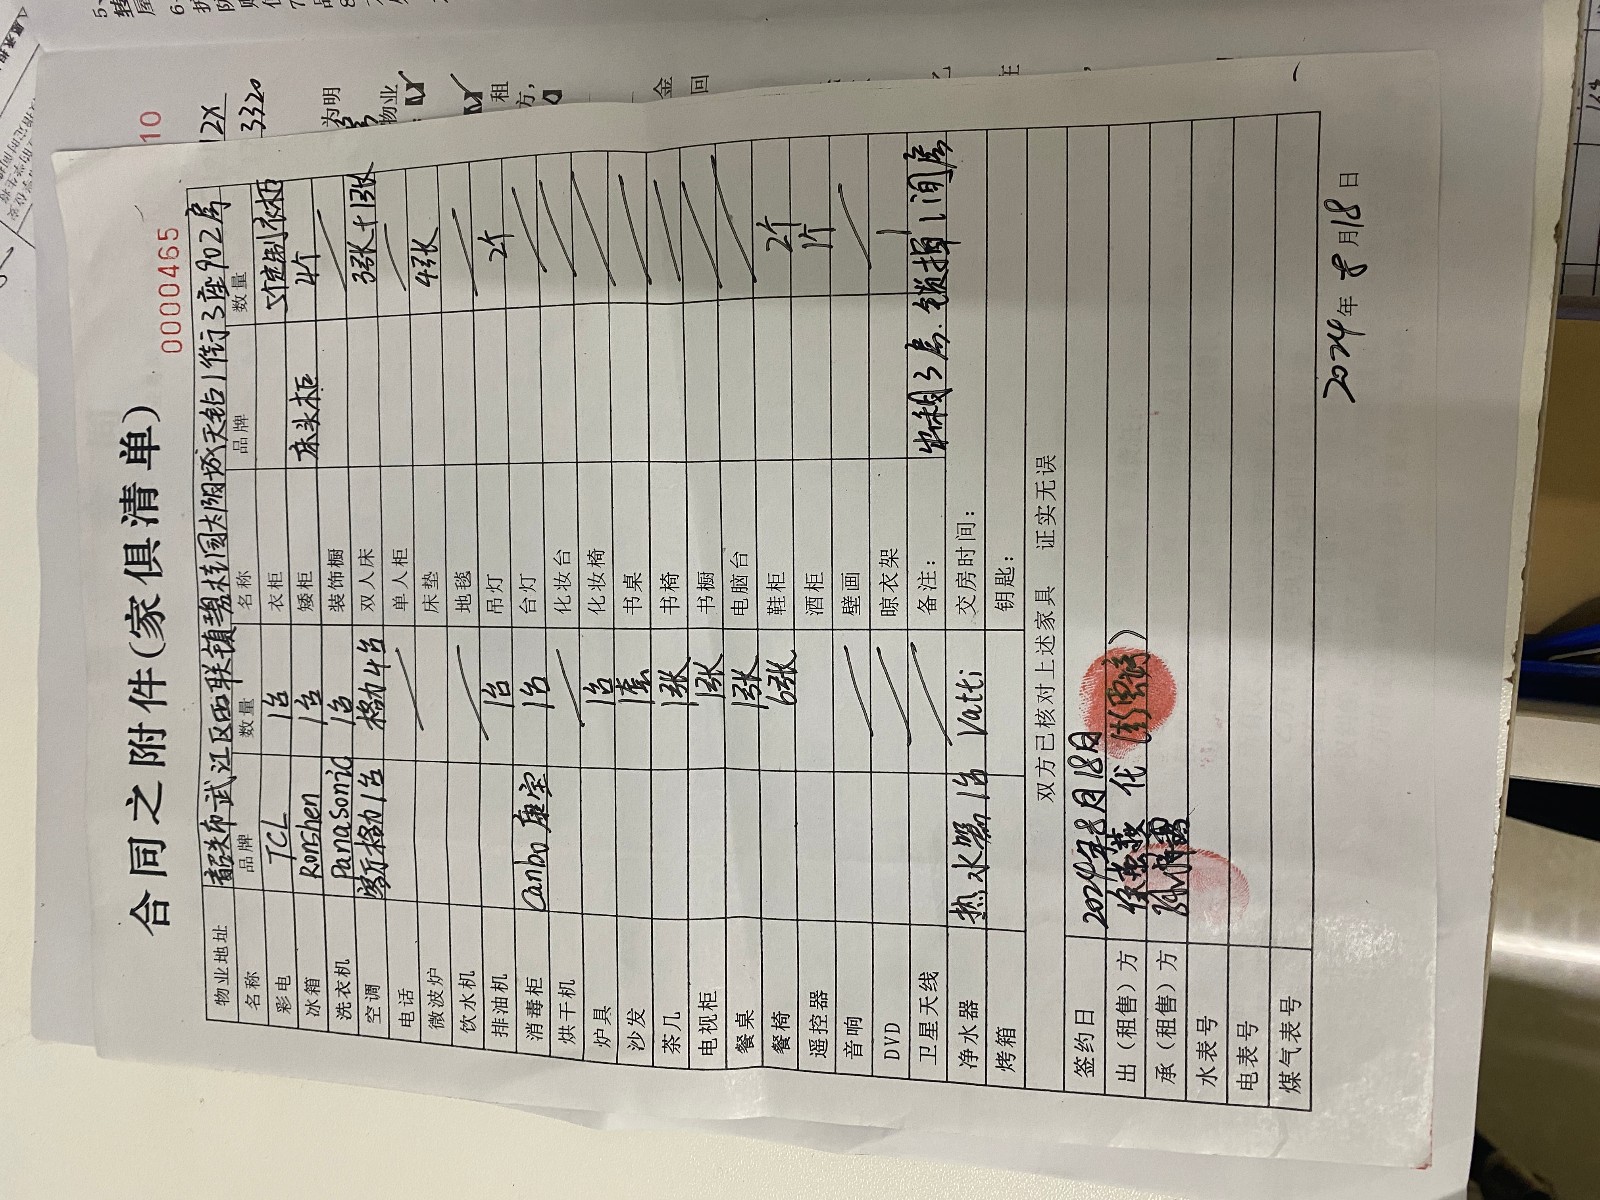 0000465
合同之附件(家俱清单)
物业地址 韶关市武江区西联镇碧桂园太阳城天钻1街3座902房
名称 品牌 数量 名称 品牌 数量
彩电 TCL 1台 衣柜 定制衣柜
冰箱 Ronshen 1台 矮柜 床头柜 4个
洗衣机 Panasonic 1台 装饰橱
空调 客厅格力1台 格力4台 双人床 3张+1张
电话 单人柜
微波炉 床垫 4张
饮水机 地毯
排油机 1台 吊灯 2个
消毒柜 Canbo 康宝 1台 台灯
烘干机 化妆台
炉具 1台 化妆椅
沙发 1套 书桌
茶几 1张 书椅
电视柜 1张 书橱
餐桌 1张 电脑台
餐椅 6张 鞋柜 2个
遥控器 酒柜 1个
音响 壁画
DVD 晾衣架 1
卫星天线 备注: 出租3房.锁掉1间房
净水器 热水器1台 Vatti 交房时间:
烤箱 钥匙:
双方已核对上述家具 证实无误
签约日 2024年8月18日
出(租售)方 代
承(租售)方
水表号
电表号
煤气表号
2024年8月18日
10
3320
为明
物业
租
方,
金
回